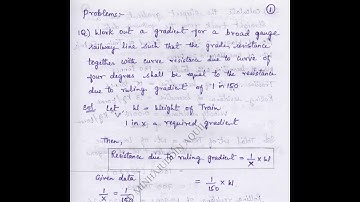 Problems:-
1
Q) Work out a gradient for a broad gauge
railway line such that the grade resistance
together with curve resistance due to curve of
four degrees shall be equal to the resistance
due to ruling gradient of 1 in 150
Sol Let W = Weight of Train
1 in x = required gradient
Then,
Resistance due to ruling gradient = 1/x × W
Given data
= 1/150 × W
1/x = 1/150